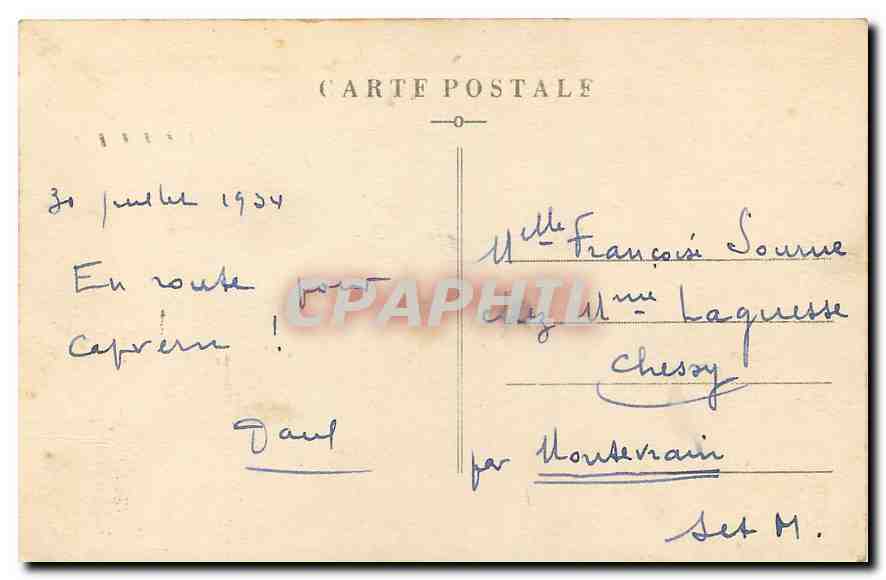 CARTE POSTALE
30 juillet 1934
En route pour
Capvern !
Paul
Melle Françoise Sourue
chez Mme Laguesse
Chessy
par Montevrain
S et M.
CPAPHIL